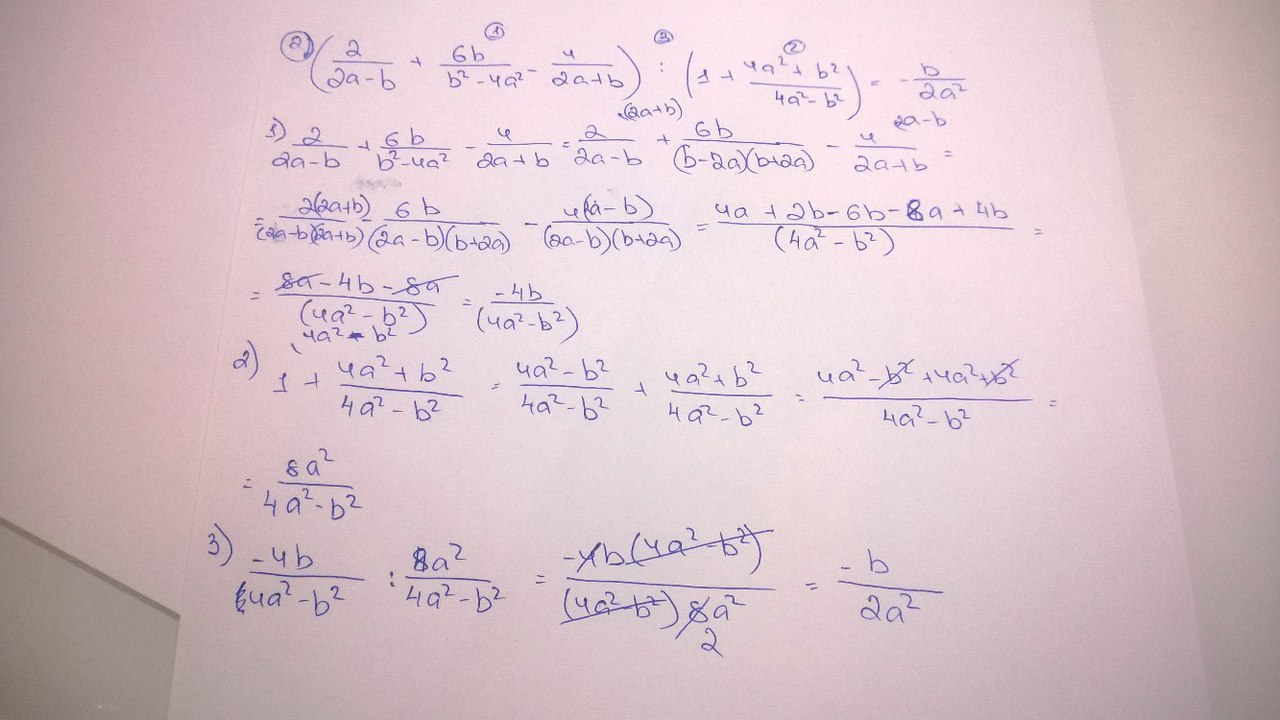 ② (2/(2a-b) + 6b/(b²-4a²) - 4/(2a+b)) : (1 + (4a²+b²)/(4a²-b²)) = -b/(2a²)
1) 2/(2a-b) + 6b/(b²-4a²) - 4/(2a+b) = 2/(2a-b) (2a+b) + 6b/((b-2a)(b+2a)) - 4/(2a+b) 2a-b =
= 2(2a+b)/((2a-b)(2a+b)) - 6b/((2a-b)(b+2a)) - 4(2a-b)/((2a-b)(b+2a)) = (4a+2b-6b-8a+4b)/(4a²-b²) =
= (8a-4b-8a)/(4a²-b²) = -4b/(4a²-b²)
2) 1 + (4a²+b²)/(4a²-b²) = (4a²-b²)/(4a²-b²) + (4a²+b²)/(4a²-b²) = (4a²-b²+4a²+b²)/(4a²-b²) =
= 8a²/(4a²-b²)
3) -4b/(4a²-b²) : 8a²/(4a²-b²) = -4b(4a²-b²)/((4a²-b²)8a²) = -b/(2a²)
2